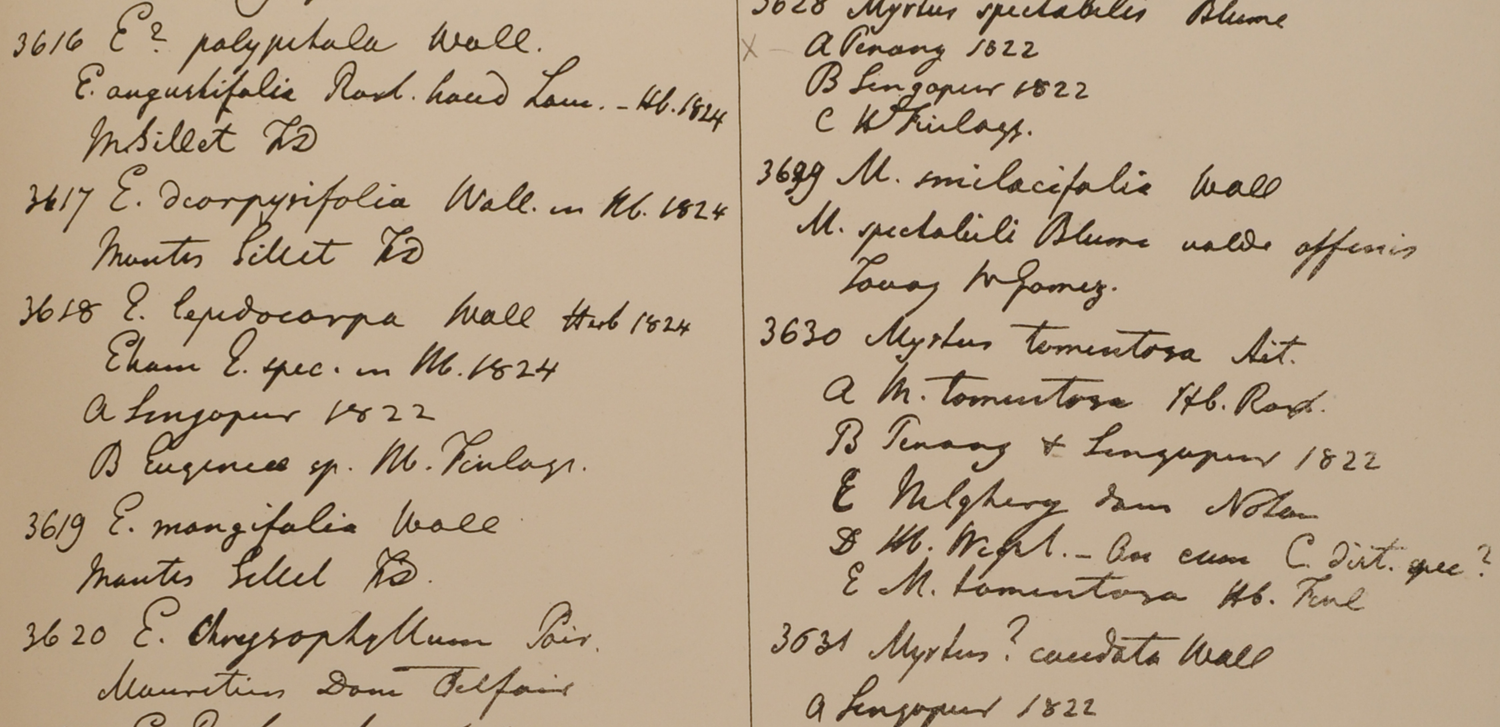 3616 E? polypetala Wall.
E. angustifolia Roxb. haud Lam. - Hb. 1824
M Sillet FD
3617 E. Wall. in Hb. 1824
Montes Sillet FD
3618 E. lepidocarpa Wall Herb 1824
Etiam E. spec. in Hb. 1824
A Singapur 1822
B Eugeniae sp. Hb. Finlays.
3619 E. mangifolia Wall
Montes Sillet FD.
3620 E. Chrysophyllum Poir.
Mauritius Dom Telfair
3628 Myrtus spectabilis Blume
X - A Penang 1822
B Singapur 1822
C Hb Finlays.
3629 M. smilacifolia Wall
M. spectabili Blume valde affinis
Tavoy W Gomez.
3630 Myrtus tomentosa Ait.
A M. tomentosa Hb. Roxb.
B Penang & Singapur 1822
E Nilghery dom Noton
D Hb. Wight. - An cum C. dist. spec?
E M. tomentosa Hb. Finl
3631 Myrtus? caudata Wall
A Singapur 1822